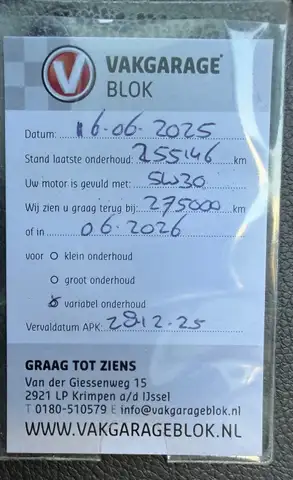 V VAKGARAGE
BLOK
Datum: 16-06-2025
Stand laatste onderhoud: 255146 km
Uw motor is gevuld met: 5W30
Wij zien u graag terug bij: 275000 km
of in 06.2026
voor O klein onderhoud
O groot onderhoud
variabel onderhoud
Vervaldatum APK: 28-12-25
GRAAG TOT ZIENS
Van der Giessenweg 15
2921 LP Krimpen a/d IJssel
T 0180-510579 E info@vakgarageblok.nl
WWW.VAKGARAGEBLOK.NL